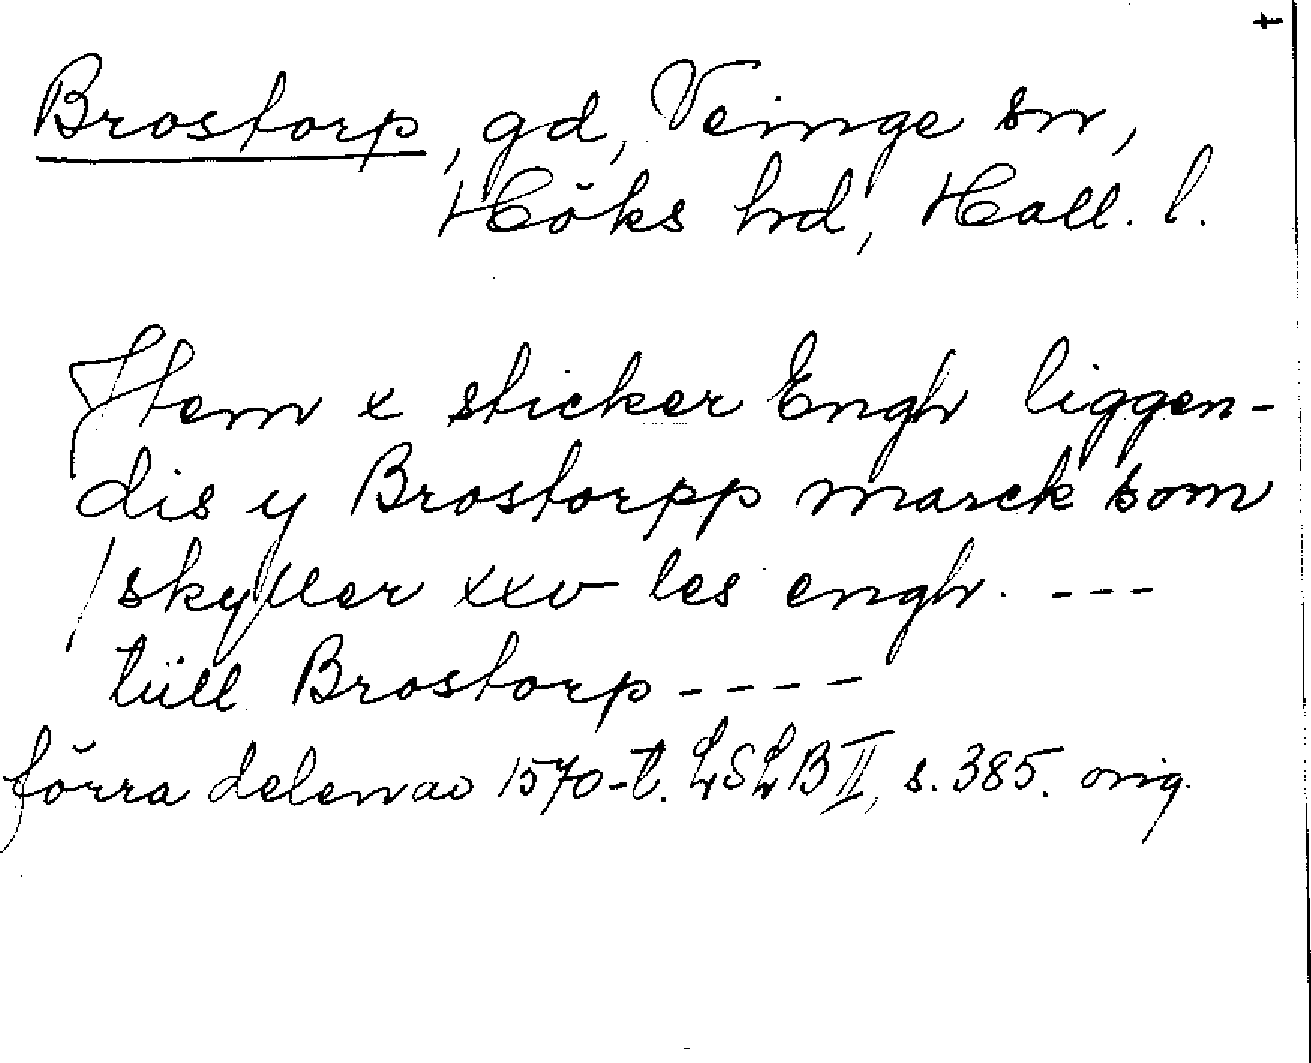 t
Brostorp, gd, Veinge sn,
Höks hrd, Hall. l.
Item x sticker Engh liggen-
dis y Brostorpp marck som
skyller xxv les engh. ---
tüll Brostorp ----
förra delen av 1570-t. LSLB II, s. 385. orig.